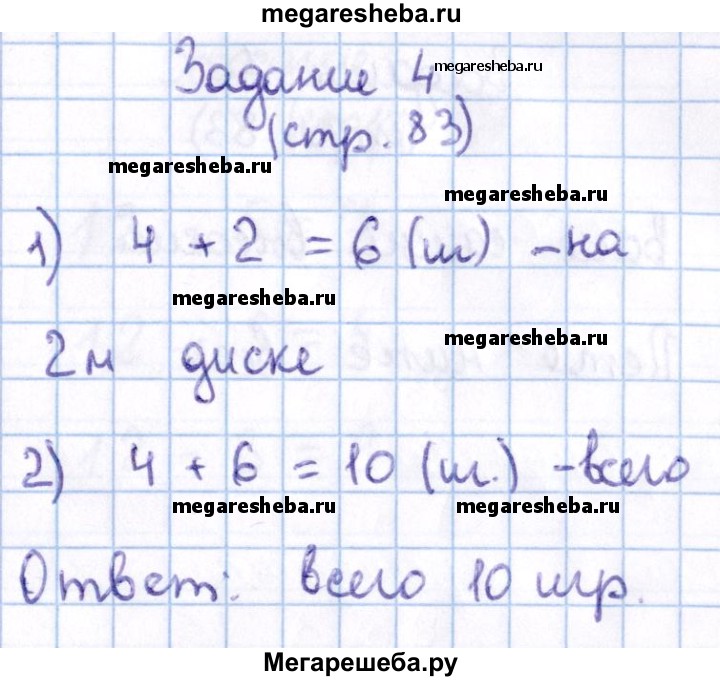 megaresheba.ru
Задание 4 megaresheba.ru
(стр. 83)
megaresheba.ru
megaresheba.ru
1) 4 + 2 = 6 (ш) - на
megaresheba.ru
megaresheba.ru
2м диске
2) 4 + 6 = 10 (ш.) - всего
megaresheba.ru megaresheba.ru
Ответ: всего 10 игр.
Мегарешеба.ру